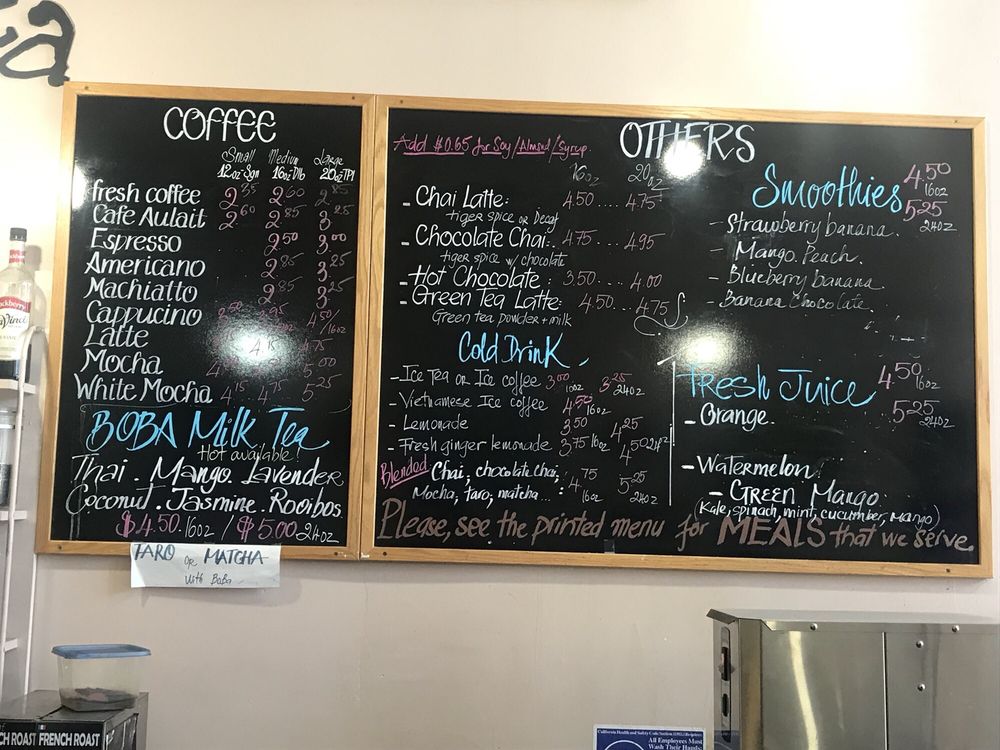 COFFEE
Small Medium Large
12oz Sgn 16oz Dlb 20oz TPl
fresh coffee 2.35 2.60 2.85
Cafe Aulait 2.60 2.85 3.25
Espresso 2.50 3.00
Americano 2.85 3.25
Machiatto 2.85 3.25
Cappucino 4.50/16oz
Latte 4.15 4.75
Mocha 5.00
White Mocha 4.15 4.75 5.25
BOBA Milk Tea
Hot available!
Thai. Mango. Lavender
Coconut. Jasmine. Rooibos
$4.50 16oz / $5.00 24oz
TARO or MATCHA
with BoBa
OTHERS
Add $0.65 for Soy/Almond/syrup.
16oz 20oz
- Chai Latte: 4.50 .... 4.75
tiger spice or Decaf
- Chocolate Chai: 4.75 .... 4.95
tiger spice w/ chocolate
- Hot Chocolate: 3.50 .... 4.00
- Green Tea Latte: 4.50 .... 4.75
Green tea powder + milk
Cold Drink
- Ice Tea or Ice coffee 3.00 16oz 3.25 24oz
- Vietnamese Ice coffee 4.50 16oz
- Lemonade 3.50 4.25
- Fresh ginger lemonade 3.75 16oz 4.50 24oz
Blended Chai, chocolate chai, : 4.75 16oz 5.25 24oz
Mocha, taro, matcha...
Smoothies 4.50 16oz
5.25 24oz
- Strawberry banana.
Mango. Peach.
- Blueberry banana
- Banana Chocolate.
Fresh Juice 4.50 16oz
5.25 24oz
- Orange.
- Watermelon
- Green Mango.
(Kale, spinach, mint, cucumber, mango)
Please, see the printed menu for MEALS that we serve.
FRENCH ROAST
All Employees Must
Wash Their Hands